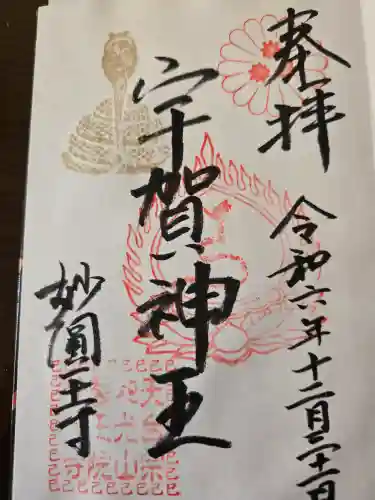 奉拝
令和六年十二月三十一日
宇賀神王
妙圓寺